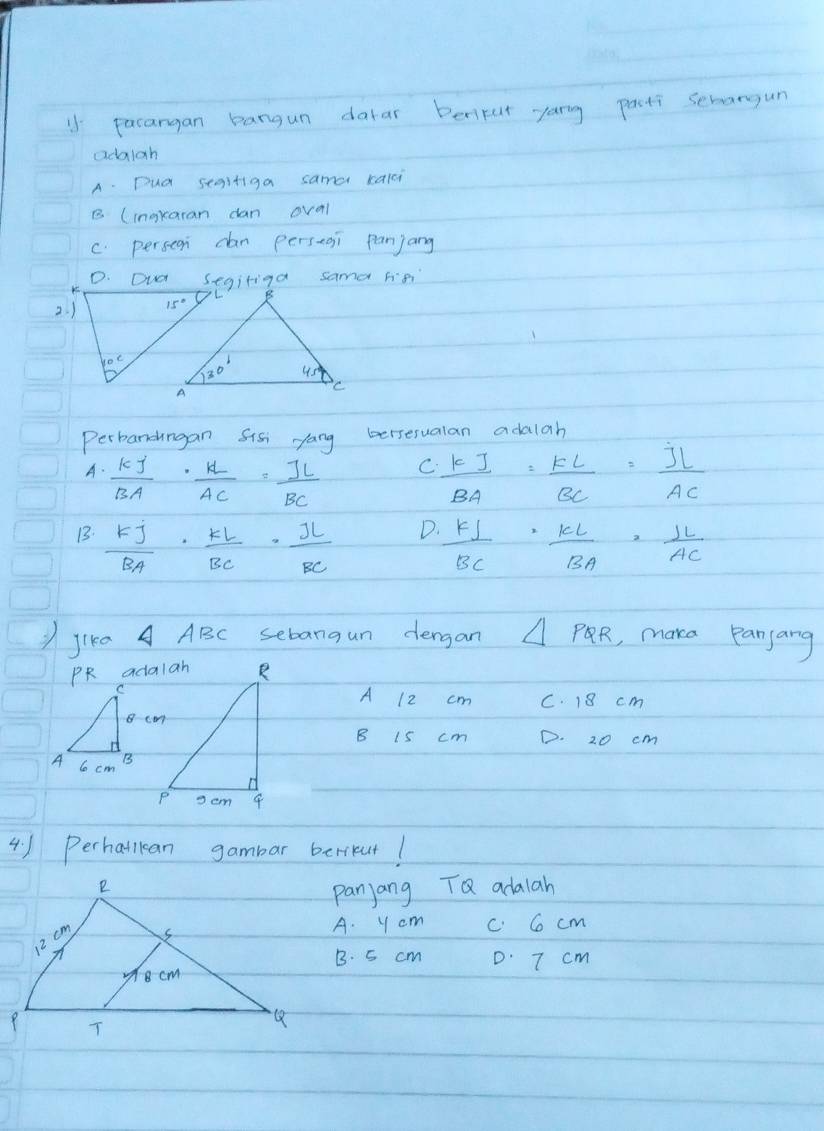 1) pasangan bangun datar berikut yang pasti sebangun
adalah
A. Dua segitiga sama kaki
B. Lingkaran dan oval
C. persegi dan persegi panjang
D. Dua segitiga sama sisi
2.) K 15° L B
A 30° 45° C
Perbandingan sisi yang bersesuaian adalah
A. KJ/BA = KL/AC = JL/BC C. KJ/BA = KL/BC = JL/AC
B. KJ/BA = KL/BC = JL/BC D. KJ/BC = KL/BA = JL/AC
) jika Δ ABC sebangun dengan Δ PQR, maka panjang
PR adalah
C R
A 12 cm C. 18 cm
8 cm
B 15 cm D. 20 cm
A 6 cm B
P 9 cm Q
4.) Perhatikan gambar berikut!
R
panjang TQ adalah
12 cm S
A. 4 cm C. 6 cm
8 cm
B. 5 cm D. 7 cm
P T Q